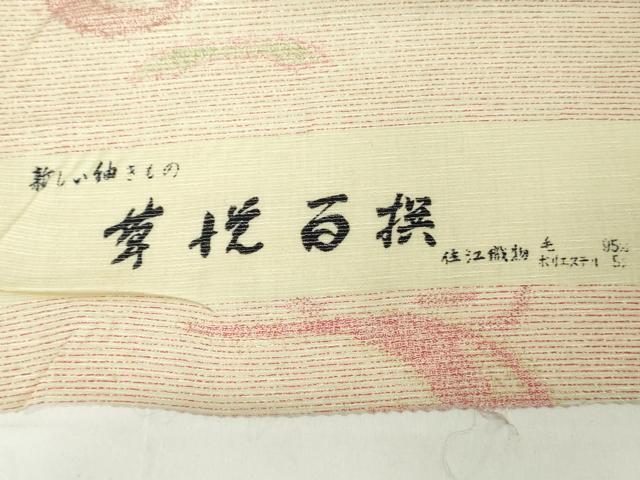 新しい紬きもの
悦百撰
住江織物
毛 95%
ポリエステル 5%